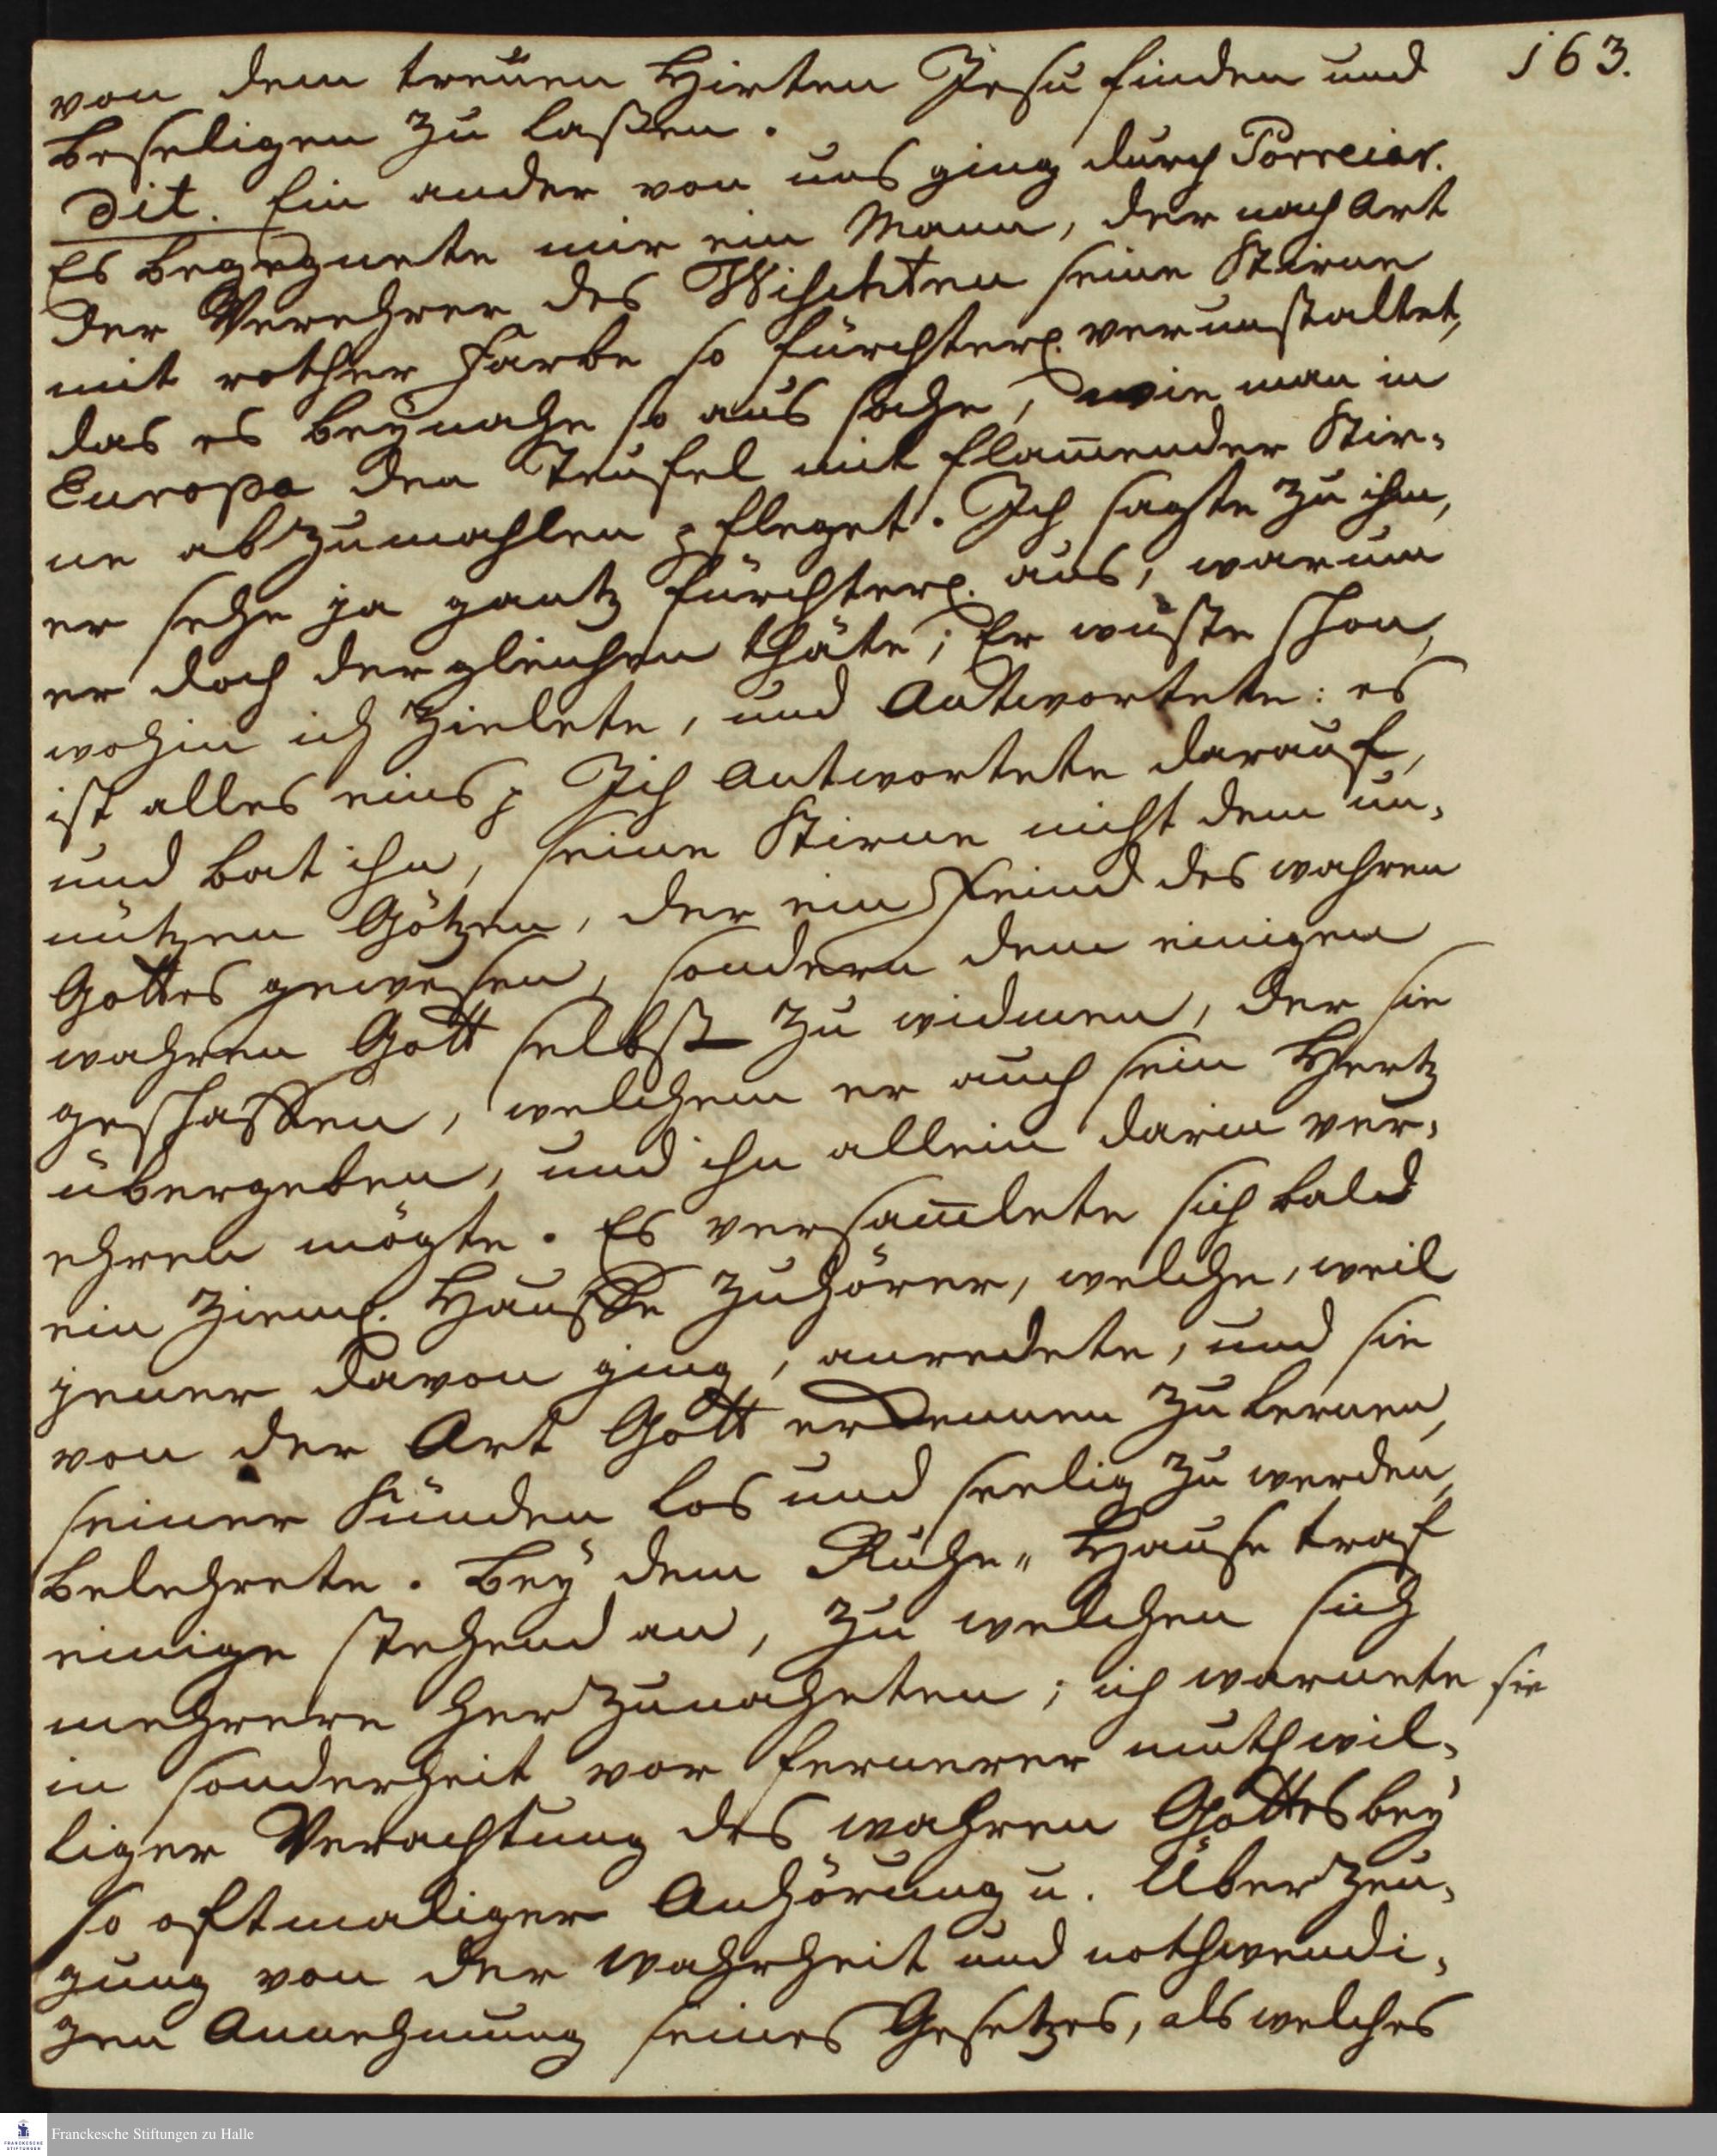 163.
von dem treuen Hirten Jesu finden und
beseligen zu laßen.
Dit. Ein ander von uns ging durch Porreiar.
Es begegnete mir ein Mann, der nach Art
der Verehrer des Wischtnu seine Stirne
mit rother Farbe so fürchterl. verunstaltet,
das es beynahe so aus sahe, wie man in
Europa den Teufel mit flam̄ender Stir-
ne abzumahlen pfleget. Ich sagte zu ihm,
er sehe ja gantz fürchterl. aus, warum
er doch dergleichen thäte; Er wuste schon,
wohin ich zielete, und antwortete: es
ist alles eins p Ich antwortete darauf,
und bat ihn, seine Stirne nicht dem un-
nützen Götzen, der ein Feind des wahren
Gottes gewesen, sondern dem einigen
wahren Gott selbst zu widmen, der sie
geschaffen, welchem er auch sein Hertz
übergeben, und ihn allein darin ver-
ehren mögte. Es versam̄lete sich bald
ein zieml. Hauffe Zuhörer, welche, weil
jener davon ging, anredete, und sie
von der Art Gott erkennen zu lernen,
seiner Sünden los und seelig zu werden,
belehrete. Bey dem Ruhe-Hause traf
einige stehend an, zu welchen sich
mehrere herzunaheten; ich warnete sie
in sonderheit vor fernerer muthwil-
liger Verachtung des wahren Gottes bey
so oftmaliger Anhörung u. Überzeu-
gung von der Wahrheit und nothwendi-
gen Annehmung seines Gesetzes, als welches
Franckesche Stiftungen zu Halle
FRANCKESCHE STIFTUNGEN